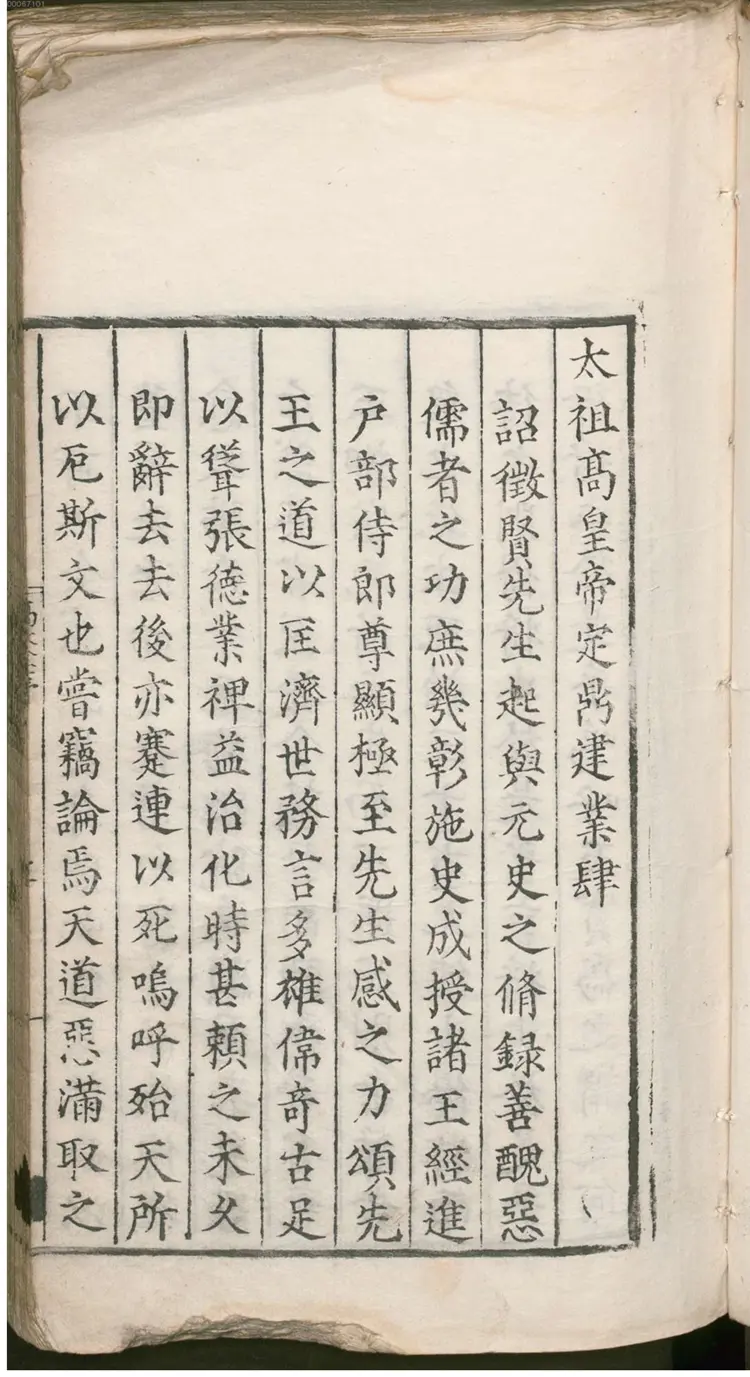 00067101
太祖髙皇帝定鼎建業肆
詔徵賢先生起與元史之脩録善醜惡
儒者之功庶幾彰施史成授諸王經進
户部侍郎尊顯極至先生感之力頌先
王之道以匡濟世務言多雄偉竒古足
以聳張德業裨益治化時甚頼之未久
即辭去去後亦蹇連以死嗚呼殆天所
以厄斯文也嘗竊論焉天道惡滿取之